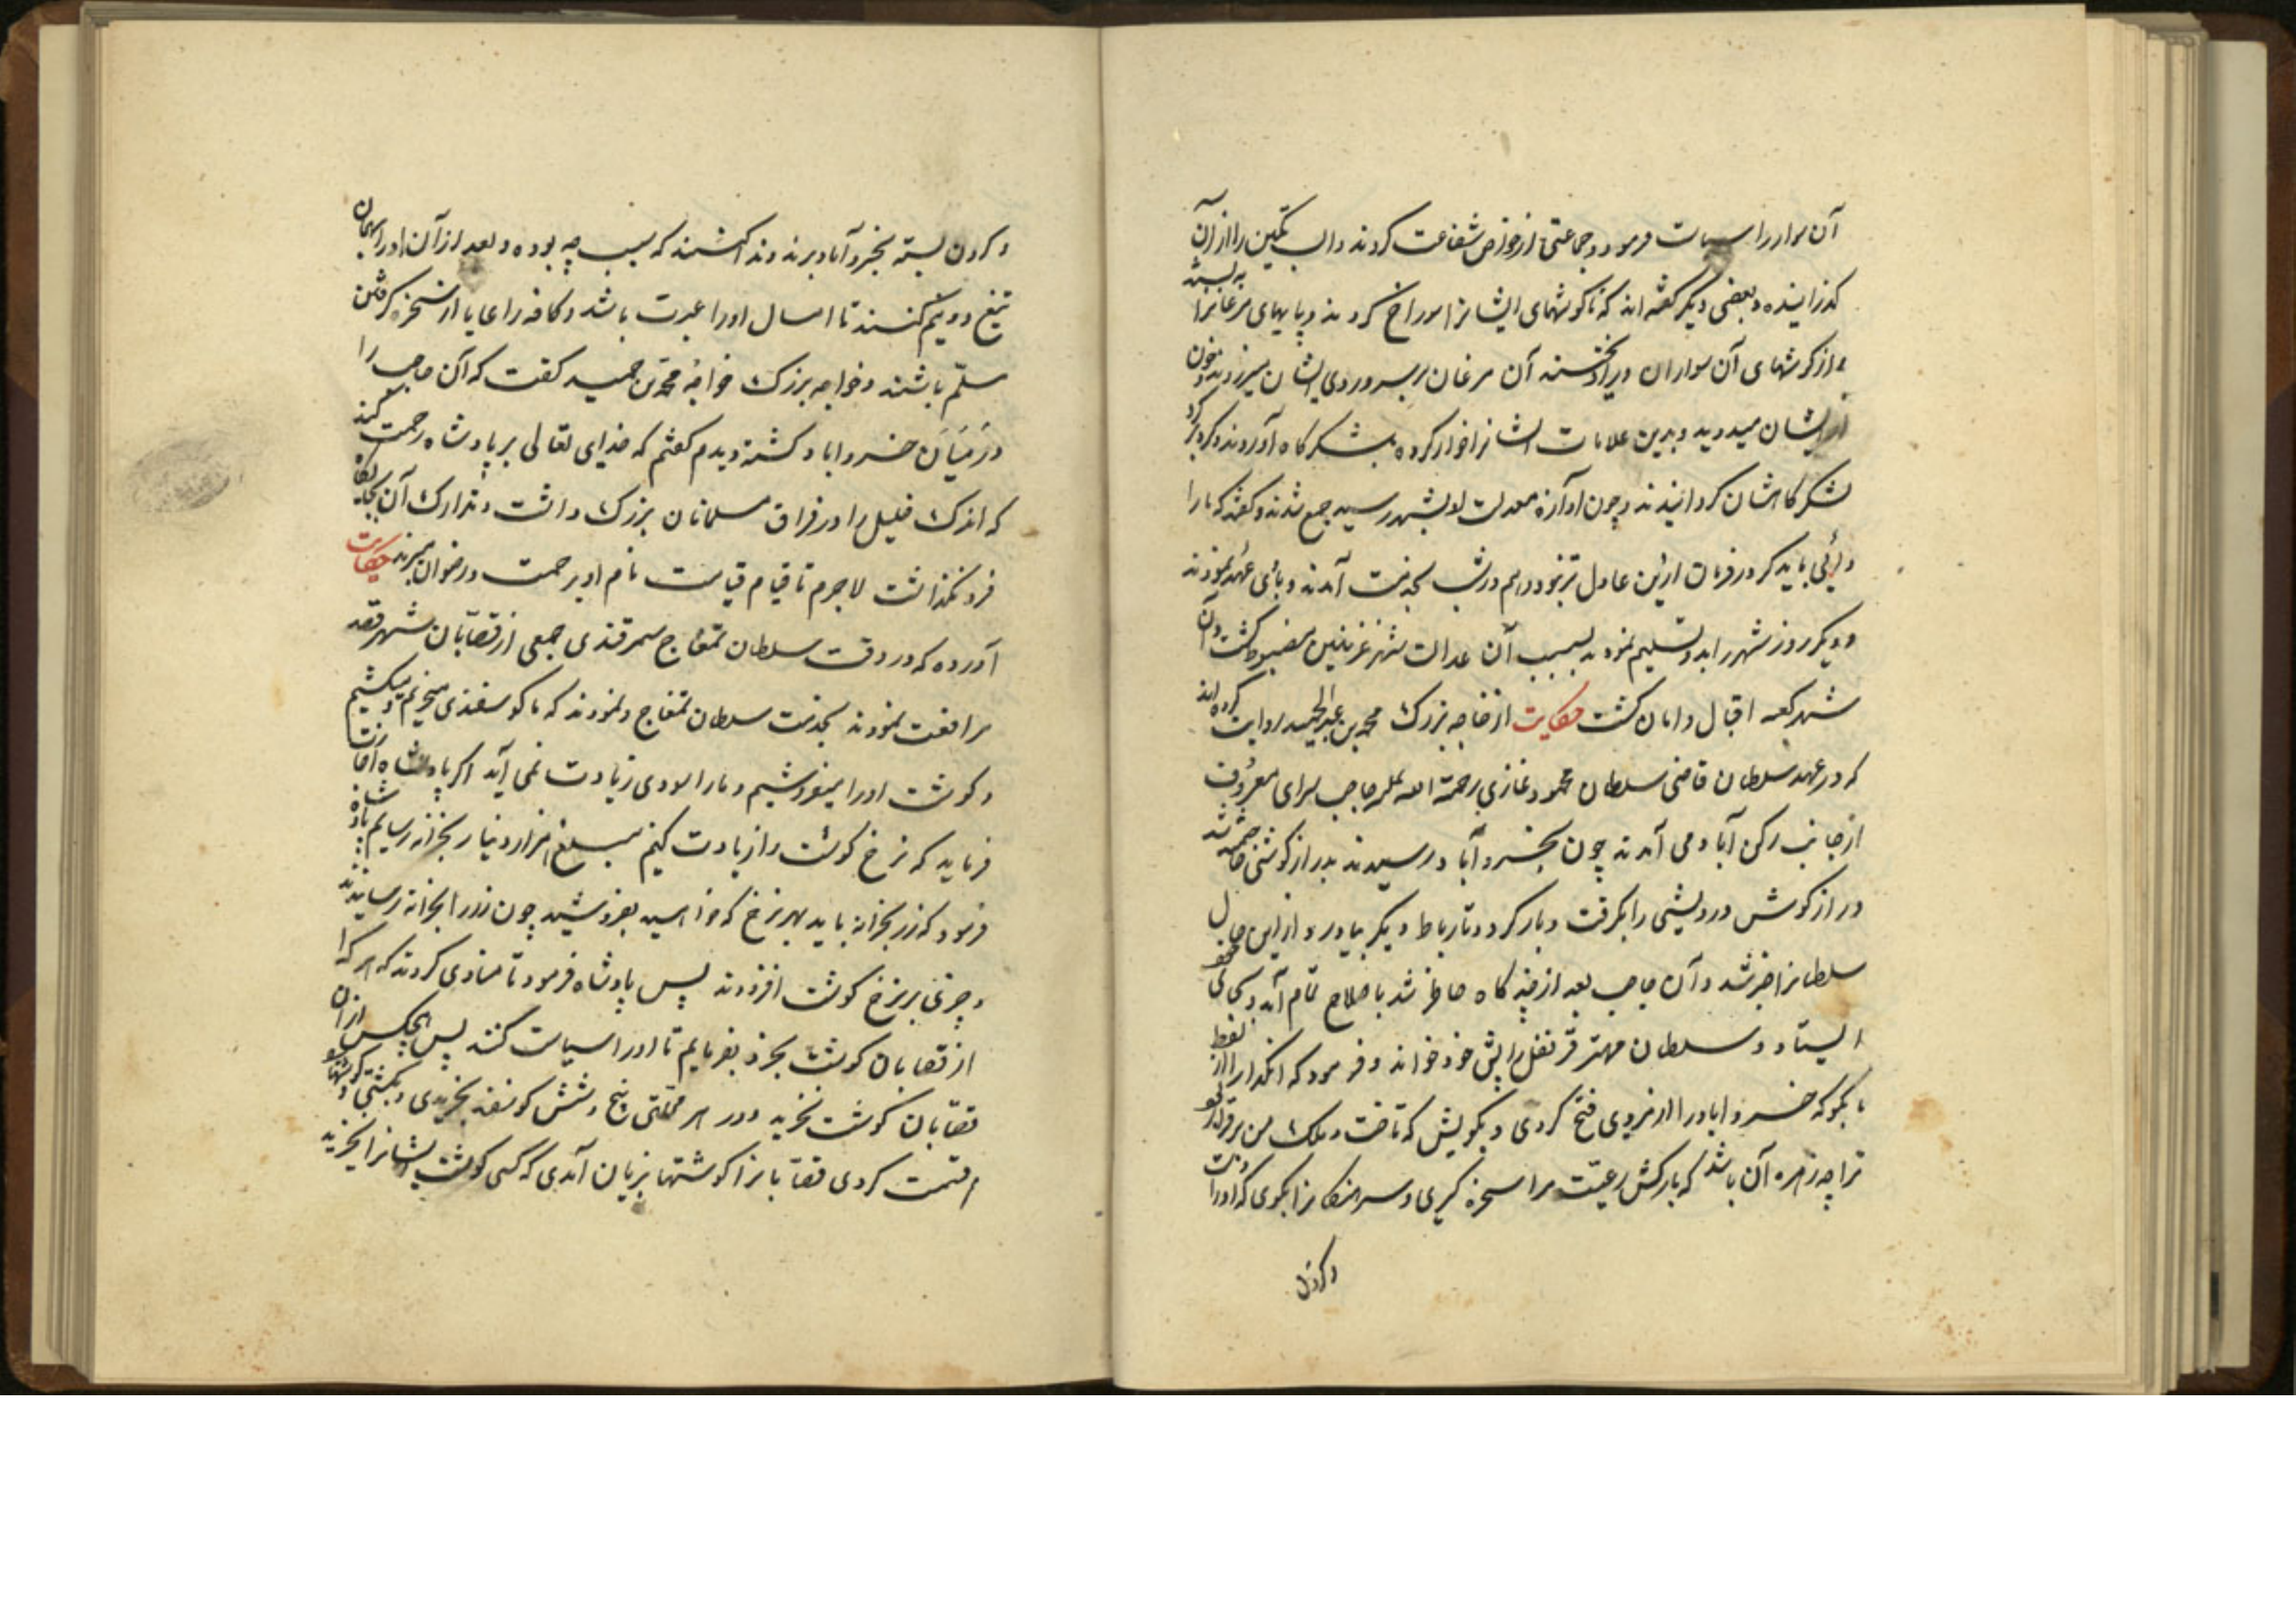 آن سوار را سیاست فرمود و جماعتی از خواص شفاعت کردند و الب تکین را از آن
گذرانیده و بعضی دیگر گفته‌اند که تا گوشهای ایشانرا سوراخ کردند و پایهای مرغانرا به بستند
از گوشهای آن سواران در آویختند آن مرغان بر سر و روی ایشان میزدند و خون
از ایشان میدوید و بدین علامات ایشانرا خوار کرده بلشکرگاه آوردند و گرد بر گرد
لشکرگاهشان گردانیدند و چون آوازه معدلت او بشهر رسید جمع شدند و گفتند که ما را
والی باید که در فرمان ازین عادل‌تر نبود و هم در شب بخدمت آمدند و با وی عهد نمودند
و دیگر روز شهر را بدو تسلیم نمودند بسبب آن عدالت شهر غزنین مضبوط گشت و آن
شهر کعبه اقبال و امان گشت حکایت از خواجه بزرگ محمد بن عبدالحمید روایت کرده‌اند
که در عهد سلطان ماضی سلطان محمود غازی رحمة الله علیه حاجب سرای معروف
از جانب رکن آباد می آمدند چون بخسرو آباد رسیدند دراز گوشی
دراز گوش درویشی را بگرفت و بار کرد و تا رباط دیگر بیاورد و از این حال
سلطانرا خبر شد و آن حاجب بعد از چند گاه حاضر شد با صلاح تمام آمد و بجای خود
ایستاد و سلطان مهتر قرنفل را پیش خود خواند و فرمود که
بگو که خسرو اباد را از نزدی فتح کردی و بگویش که تا تخت و ملک من برقرار بود
ترا چه زهره آن باشد که بارکش رعیت مرا سخره گیری و سرهنگانرا بگوی که او را دست
و گردن
و گردن بسته بخسرو آباد برند و ندا کنند که سبب چه بوده و بعد از آن او را میان
تیغ دو نیم کنند تا امثال او را عبرت باشد و کافه رعایا از سخره گرفتن
مسلّم باشند و خواجه بزرگ خواجه محمد بن حمید گفت که آن حاجب را
در میان خسرو اباد کشته دیدم گفتم که خدای تعالی بر پادشاه رحمت کند
که اندک قلیل را در فراق مسلمانان بزرگ داشت و تدارک آن بجایگاه
فرو نگذاشت لاجرم تا قیام قیامت نام او برحمت و رضوان میبرند حکایت
آورده که در وقت سلطان تمغاج سمرقندی جمعی از قصّابان شهر قصه
مرافعت نمودند بخدمت سلطان تمغاج و نمودند که ما گوسفندی میخریم و میکشیم
و گوشت او را میفروشیم و ما را سودی زیادت نمی آید اگر پادشاه اجازت
فرماید که نرخ گوشت را زیادت کنیم مبلغ هزار دینار بخزانه رسانیم پادشاه
فرمود که زر بخزانه باید بهر نرخ که خواهید بفروشید چون زر را بخزانه رسانیدند
و چیزی بر نرخ گوشت افزودند پس پادشاه فرمود تا منادی کردند که هر که
از قصابان گوشت بخرد بفرمایم تا او را سیاست کنند پس هیچکس از آن
قصّابان گوشت نخرید و در هر محلّتی پنج و شش گوسفند بخریدی و بکشتی و گوشتها
قسمت کردی قصّابانرا گوشتها بزیان آمدی که کسی گوشت ایشانرا نخرید